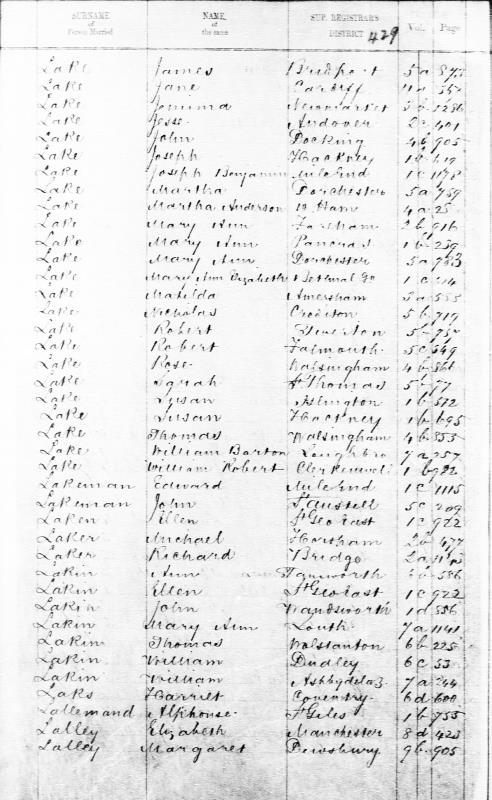 SURNAME of Person Married NAME of the same SUP. REGISTRAR'S DISTRICT 429 Vol. Page
Lake James Bridport 5a
Lake Jane Cardiff
Lake Jemima Newmarket 3b 1286
Lake Jesse Andover 2c 401
Lake John Docking 4b 905
Lake Joseph Hackney 1b 619
Lake Joseph Benjamin Mile End 1c 1178
Lake Martha Dorchester 5a 759
Lake Martha Anderson W. Ham 4a 25
Lake Mary Ann Fareham 2b 916
Lake Mary Ann Pancras 1b 239
Lake Mary Ann Dorchester 5a
Lake Mary Ann Elizabeth Bethnal Gn 1c
Lake Matilda Amersham 3a 585
Lake Nicholas Crediton 5b 719
Lake Robert Tiverton 5b
Lake Robert Falmouth 5c 349
Lake Rose Walsingham 4b
Lake Sarah St Thomas 5b 77
Lake Susan Islington 1b 572
Lake Susan Hackney 1b 695
Lake Thomas Walsingham 4b 853
Lake William Barton Loughbro 7a 257
Lake William Robert Clerkenwell 1b 982
Lakeman Edward Mile End 1c 1115
Lakeman John St Austell 5c 209
Laken Ellen St Geo East 1c 922
Laker Michael Horsham 2b 477
Laker Richard Bridge 2a
Lakin Ann Tamworth 6b 586
Lakin Ellen St Geo East 1c 922
Lakin John Wandsworth 1d 886
Lakin Mary Ann Louth 7a 1141
Lakin Thomas Wolstanton 6b 225
Lakin William Dudley 6c 53
Lakin William Ashby de la Z. 7a 244
Laks Harriet Coventry 6d 600
Lallemand Alphonse St Giles 1b 755
Lalley Elizabeth Manchester 8d 423
Lalley Margaret Dewsbury 9b 905